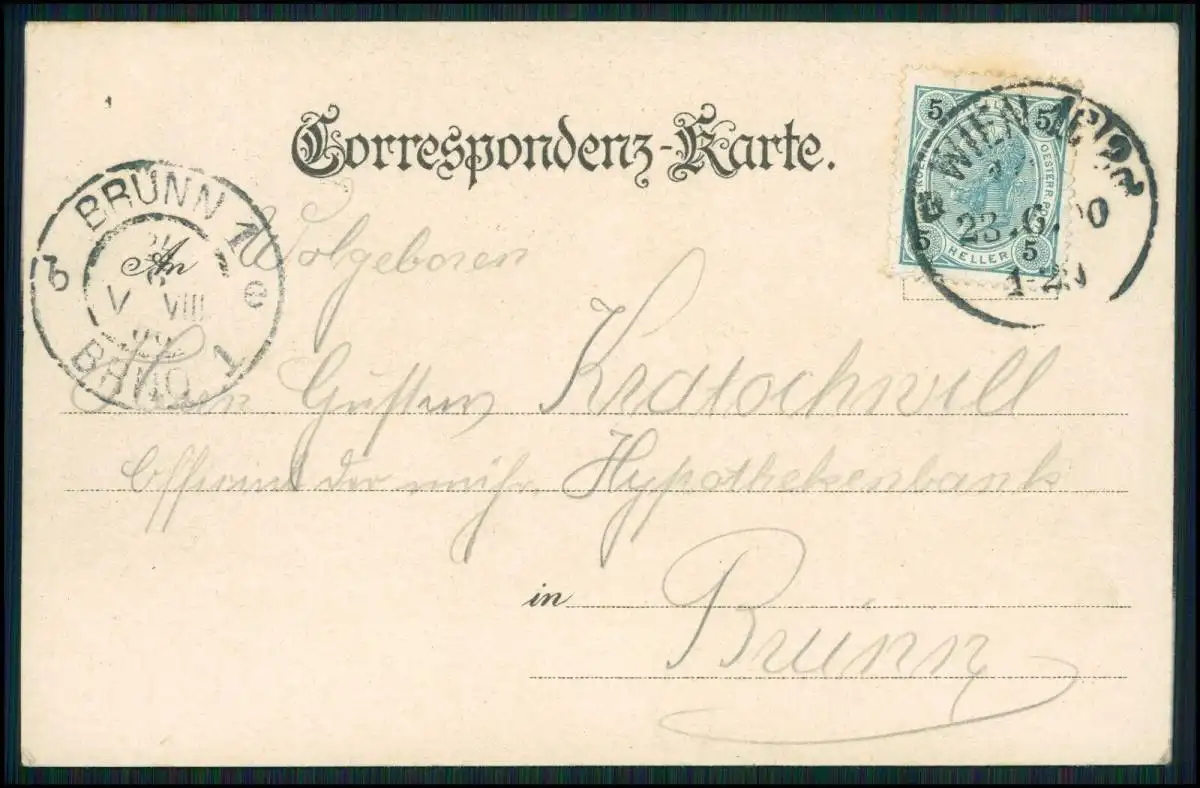 Correspondenz-Karte.
5 5
WIEN
23.6.00
5 HELLER 5
BRÜNN 1
An
V VIII
BRNO 1
Wolgeboren
Herrn Gustav Kratochwill
Official der mähr. Hypothekenbank
in
Brünn